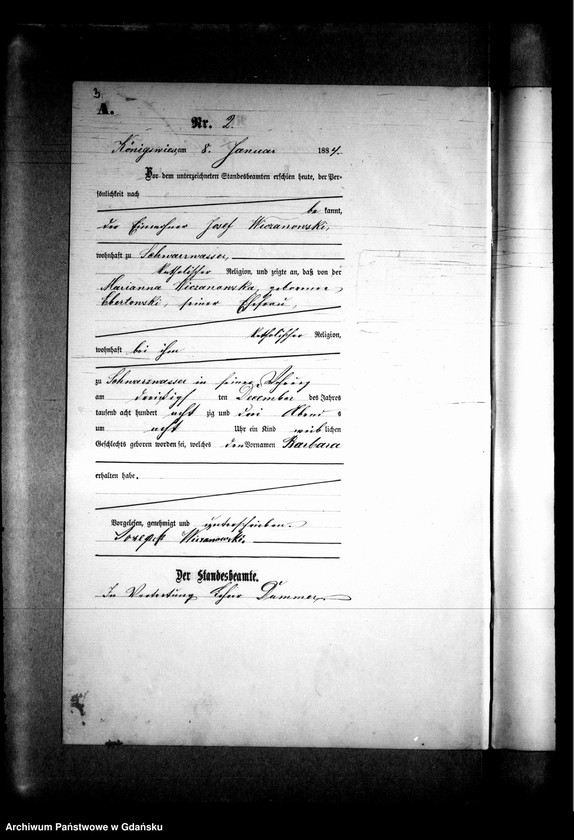 3
A.
Nr. 2.
Königswiese, am 8. Januar 1884.
Vor dem unterzeichneten Standesbeamten erschien heute, der Per-
sönlichkeit nach
be kannt,
der Einwohner Josef Wiczanowski,
wohnhaft zu Schwarzwasser,
katholischer Religion, und zeigte an, daß von der
Marianna Wiczanowska, geborenen
Ebertowski, seiner Ehefrau,
katholischer Religion,
wohnhaft bei ihm
zu Schwarzwasser in seiner
am dreißigsten December des Jahres
tausend acht hundert acht zig und drei Abends
um acht Uhr ein Kind weiblichen
Geschlechts geboren worden sei, welches den Vornamen Barbara
erhalten habe.
Vorgelesen, genehmigt und unterschrieben.
Josepf Wiczanowski
Der Standesbeamte.
In Vertretung Dummer
Archiwum Państwowe w Gdańsku